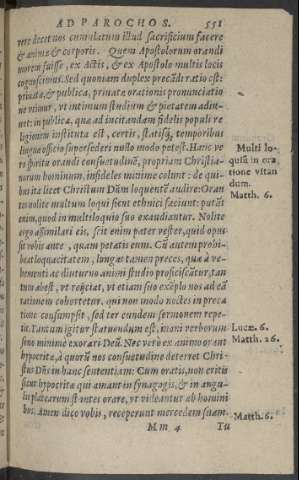 AD PAROCHOS. 551
vere decet nos cumulatum illud sacrificium facere
& animis & corporis. Quem Apostolorum orandi
morem fuisse, ex Actis, & ex Apostolo multis locis
cognoscimus. Sed quoniam duplex precādi ratio est:
priuata, & publica, priuatæ orationis pronunciatio
ne vtimur, vt intimum studium & pietatem adiu-
uet: in publica, quæ ad incitandam fidelis populi re
ligionem instituta est, certis, statisq́; temporibus
linguæ officio supersederi nullo modo potest. Hanc ve
ro spiritu orandi consuetudinē, propriam Christia-
norum hominum, infideles minime colunt: de qui-
bus ita licet Christum Dñm loquentē audire: Oran
tes nolite multum loqui sicut ethnici faciunt: putāt
enim, quod in multiloquio suo exaudiantur. Nolite
ergo assimilari eis, scit enim pater vester, quid opus
sit vobis ante, quam petatis eum. Cū autem prohi-
beat loquacitatem, longas tamen preces, quæ à ve-
hementi ac diuturno animi studio proficiscūtur, tan
tum abest, vt reijciat, vt etiam suo exēplo nos ad eā
rationem cohortetur. qui non modo noctes in preca
tione consumpsit, sed ter eundem sermonem repe-
tit. Tantum igitur statuendum est, inani verborum
sono minime exorari Deū. Nec vero ex animo orant
hypocritæ, à quorū nos consuetudine deterret Chri-
stus Dñs in hanc sententiam: Cum oratis, non eritis
sicut hypocritæ qui amant in synagogis, & in angu-
lis platearum stātes orare, vt videantur ab homini
bus. Amen dico vobis, receperunt mercedem suam.
Mm 4 Tu
Multi lo-
quiū in ora
tione vitan
dum.
Matth. 6.
Lucæ. 6.
Matth. 26.
Matth. 6.